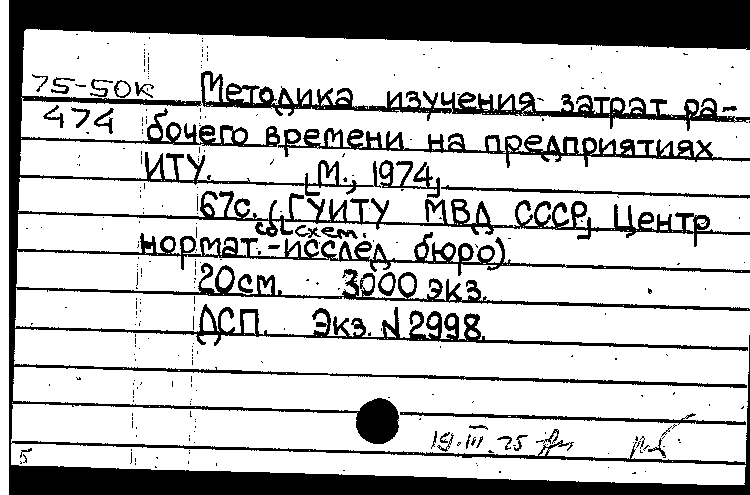 75-50к Методика изучения затрат ра-
474 бочего времени на предприятиях
ИТУ. [М., 1974]
67с. ([ГУИТУ МВД СССР], Центр
со схем.
нормат.-исслед. бюро).
20см. 3000 экз.
ДСП. Экз. N2998.
19.III.75
5